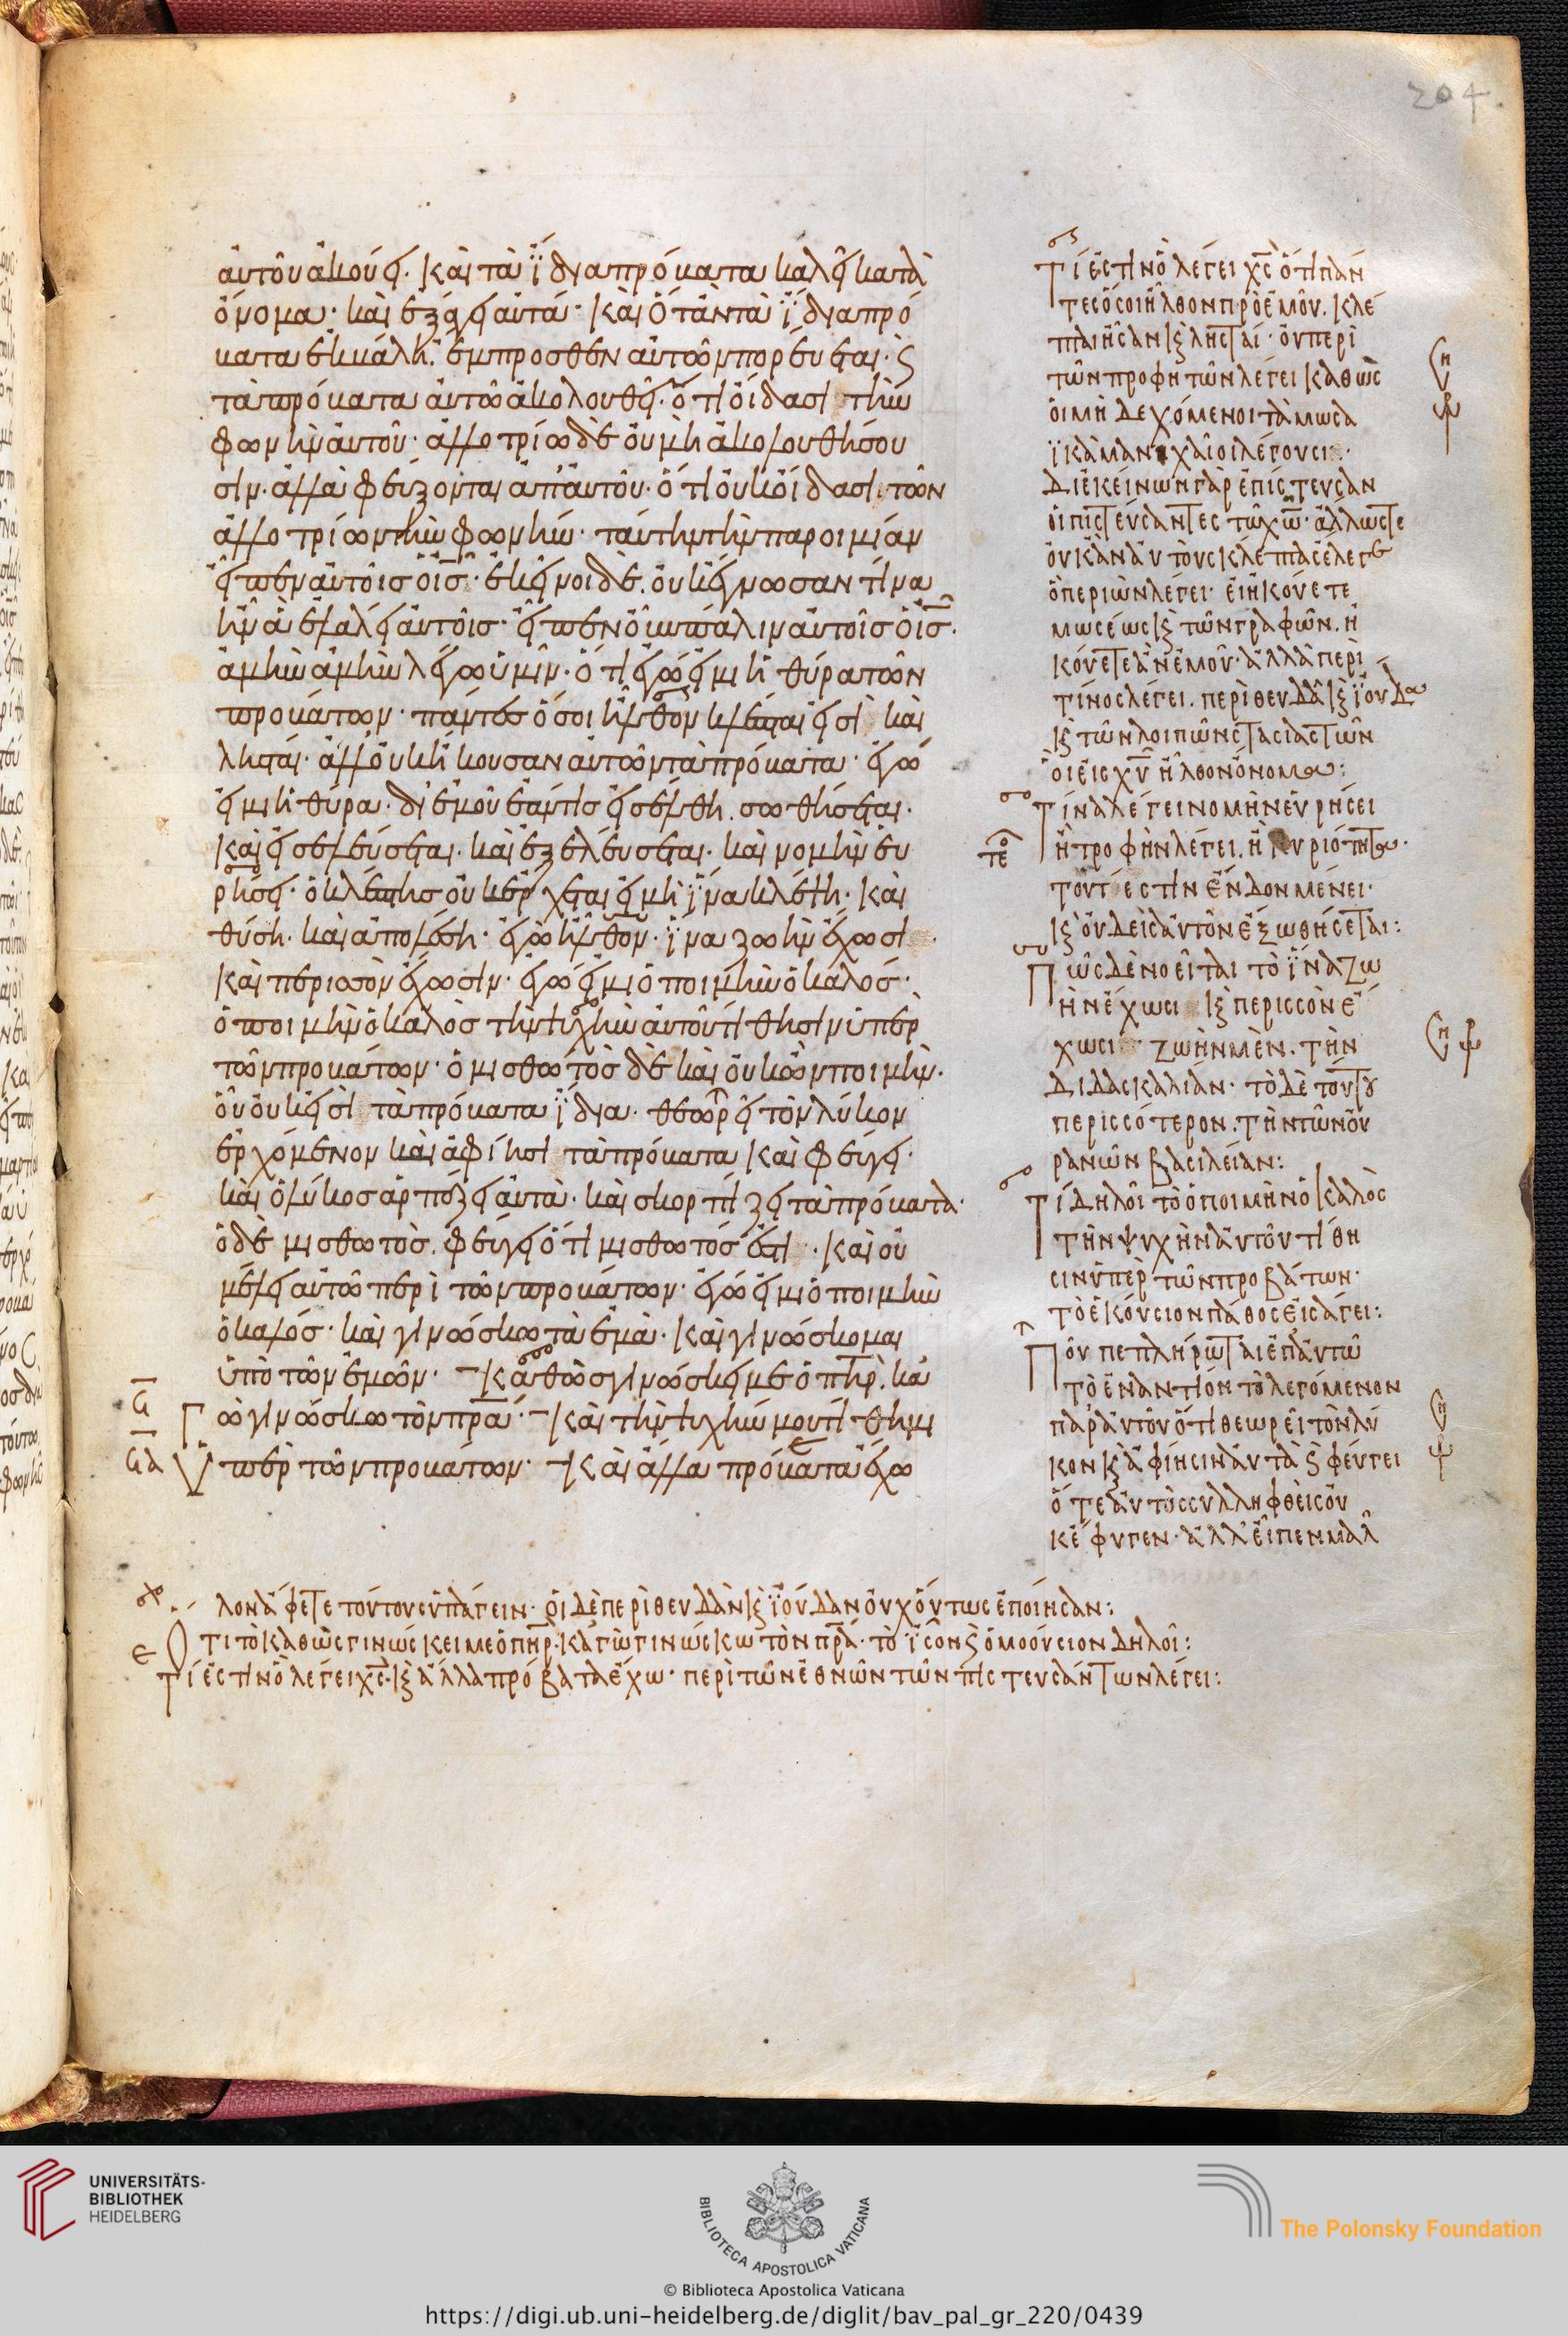 204.
αὐτοῦ ἀκούει· καὶ τὰ ἴδια πρόβατα καλεῖ κατὰ
ὄνομα· καὶ ἐξάγει αὐτά· καὶ ὅταν τὰ ἴδια πρό
βατα ἐκβάλη· ἔμπροσθεν αὐτῶν πορεύεται· ϛ
τὰ πρόβατα αὐτῶ ἀκολουθεῖ· ὅτι οἴδασι τὴν
φωνὴν αὐτοῦ· ἀλλοτρίω δὲ οὐ μὴ ἀκολουθήσου
σιν· ἀλλὰ φεύξονται ἀπ' αὐτοῦ· ὅτι οὐκ οἴδασι τῶν
ἀλλοτρίων τὴν φωνήν· ταύτην τὴν παροιμίαν
εἶπεν αὐτοῖς ὁ ις· ἐκεῖνοι δὲ οὐκ ἔγνωσαν τίνα
ἦν ἃ ἐλάλει αὐτοῖς· εἶπεν οὖν πάλιν αὐτοῖς ὁ ις·
ἀμὴν ἀμὴν λέγω ὑμῖν· ὅτι ἐγώ εἰμι ἡ θύρα τῶν
προβάτων· πάντες ὅσοι ἦλθον κλέπται εἰσὶ καὶ
λησταί· ἀλλ' οὐκ ἤκουσαν αὐτῶν τὰ πρόβατα· ἐγώ
εἰμι ἡ θύρα· δι' ἐμοῦ ἐάν τις εἰσέλθη· σωθήσεται·
καὶ εἰσελεύσεται· καὶ ἐξελεύσεται· καὶ νομὴν εὑ
ρήσει· ὁ κλέπτης οὐκ ἔρχεται εἰ μὴ ἵνα κλέψη· καὶ
θύση· καὶ ἀπολέση· ἐγὼ ἦλθον· ἵνα ζωὴν ἔχωσι
καὶ περισσὸν ἔχωσιν· ἐγώ εἰμι ὁ ποιμὴν ὁ καλός·
ὁ ποιμὴν ὁ καλὸς τὴν ψυχὴν αὐτοῦ τίθησιν ὑπὲρ
τῶν προβάτων· ὁ μισθωτὸς δὲ καὶ οὐκ ὢν ποιμήν·
οὗ οὐκ εἰσὶ τὰ πρόβατα ἴδια· θεωρεῖ τὸν λύκον
ἐρχόμενον καὶ ἀφίησι τὰ πρόβατα καὶ φεύγει·
καὶ ὁ λύκος ἁρπάζει αὐτὰ· καὶ σκορπίζει τὰ πρόβατα·
ὁ δὲ μισθωτὸς· φεύγει ὅτι μισθωτός ἐστι· καὶ οὐ
μέλει αὐτῶ περὶ τῶν προβάτων· ἐγώ εἰμι ὁ ποιμὴν
ὁ καλός· καὶ γινώσκω τὰ ἐμὰ· καὶ γινώσκομαι
ὑπὸ τῶν ἐμῶν· καθὼς γινώσκει με ὁ πηρ· κἀ
γὼ γινώσκω τὸν πρα· καὶ τὴν ψυχήν μου τίθημι
ὑπὲρ τῶν προβάτων· καὶ ἄλλα πρόβατα ἔχω
Τί ἐστιν ὃ λέγει χς ὅτι πάν
τες ὅσοι ἦλθον πρὸ ἐμοῦ· κλέ
πται ἦσαν κ λησταί· οὐ περὶ
τῶν προφητῶν λέγει καθὼς
οἱ μὴ δεχόμενοι τὰ μωσα
ϊκὰ μανιχαῖοι λέγουσι·
δι' ἐκείνων γὰρ ἐπίστευσαν
οἱ πιστεύσαντες τῶ χω· ἄλλωστε
οὐκ ἂν αὐτοὺς κλέπτας ἔλεγε
ὁ περὶ ὧν λέγει· εἰ ἠκούετε
μωσέως κ τῶν γραφῶν· ἠ
κούετε ἂν ἐμοῦ· ἀλλὰ περὶ
τίνος λέγει· περὶ θευδᾶ κ ἰούδα
κ τῶν λοιπῶν στασιαστῶν
οἳ εἰς χυ ἦλθον ὄνομα:
Τίνα λέγει νομὴν εὑρήσει
ἢ τροφὴν λέγει· ἢ κυριότητα·
τουτέστιν ἔνδον μένει·
κ οὐδεὶς αὐτὸν ἐξωθήσεται:
Πῶς δὲ νοεῖται τὸ ἵνα ζω
ὴν ἔχωσι κ περισσὸν ἔ
χωσι· ζωὴν μὲν· τὴν
διδασκαλίαν· τὸ δὲ τούτου
περισσότερον· τὴν τῶν οὐ
ρανῶν βασιλείαν:
Τί δηλοῖ τὸ ὁ ποιμὴν ὁ καλὸς
τὴν ψυχὴν αὐτοῦ τίθη
σιν ὑπὲρ τῶν προβάτων·
τὸ ἑκούσιον πάθος εἰσάγει:
Ποῦ πεπλήρωται ἐπ' αὐτῶ
τὸ ἐναντίον τὸ λεγόμενον
παρ' αὐτοῦ ὅτι θεωρεῖ τὸν λύ
κον κ ἀφίησιν αὐτὰ ϛ φεύγει
ὅτε αὐτὸς συλληφθεὶς οὐ
κ ἔφυγεν· ἀλλ' εἶπεν μᾶλ
λον ἄφετε τούτους ὑπάγειν· οἱ δὲ περὶ θευδὰν κ ἰούδαν οὐχ οὕτως ἐποίησαν:
Ὅτι τὸ καθὼς γινώσκει με ὁ πηρ· κἀγὼ γινώσκω τὸν πρα· τὸ ἴσον ϛ ὁμοούσιον δηλοῖ:
Τί ἐστιν ὃ λέγει χς· κ ἄλλα πρόβατα ἔχω· περὶ τῶν ἐθνῶν τῶν πιστευσάντων λέγει:
UNIVERSITÄTS-
BIBLIOTHEK
HEIDELBERG
BIBLIOTECA APOSTOLICA VATICANA
The Polonsky Foundation
© Biblioteca Apostolica Vaticana
https://digi.ub.uni-heidelberg.de/diglit/bav_pal_gr_220/0439